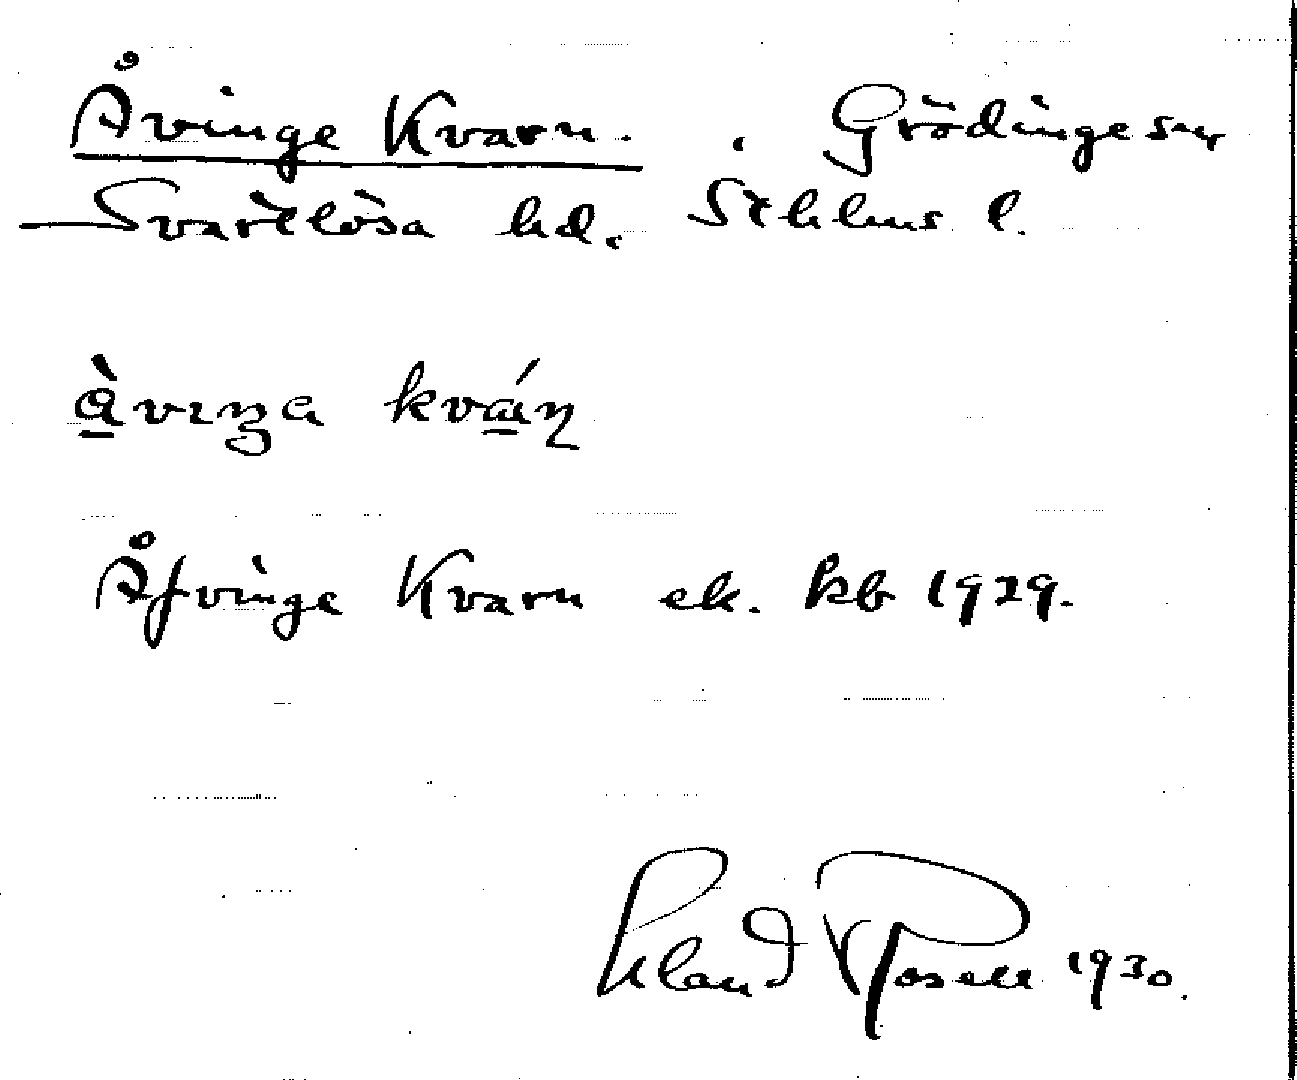 Åvinge Kvarn. Grödinge sn
Svartlösa hd. Sthlms l.
àvıŋa kván
Åfvinge Kvarn ek. kb 1929.
Erland Rosell 1930.